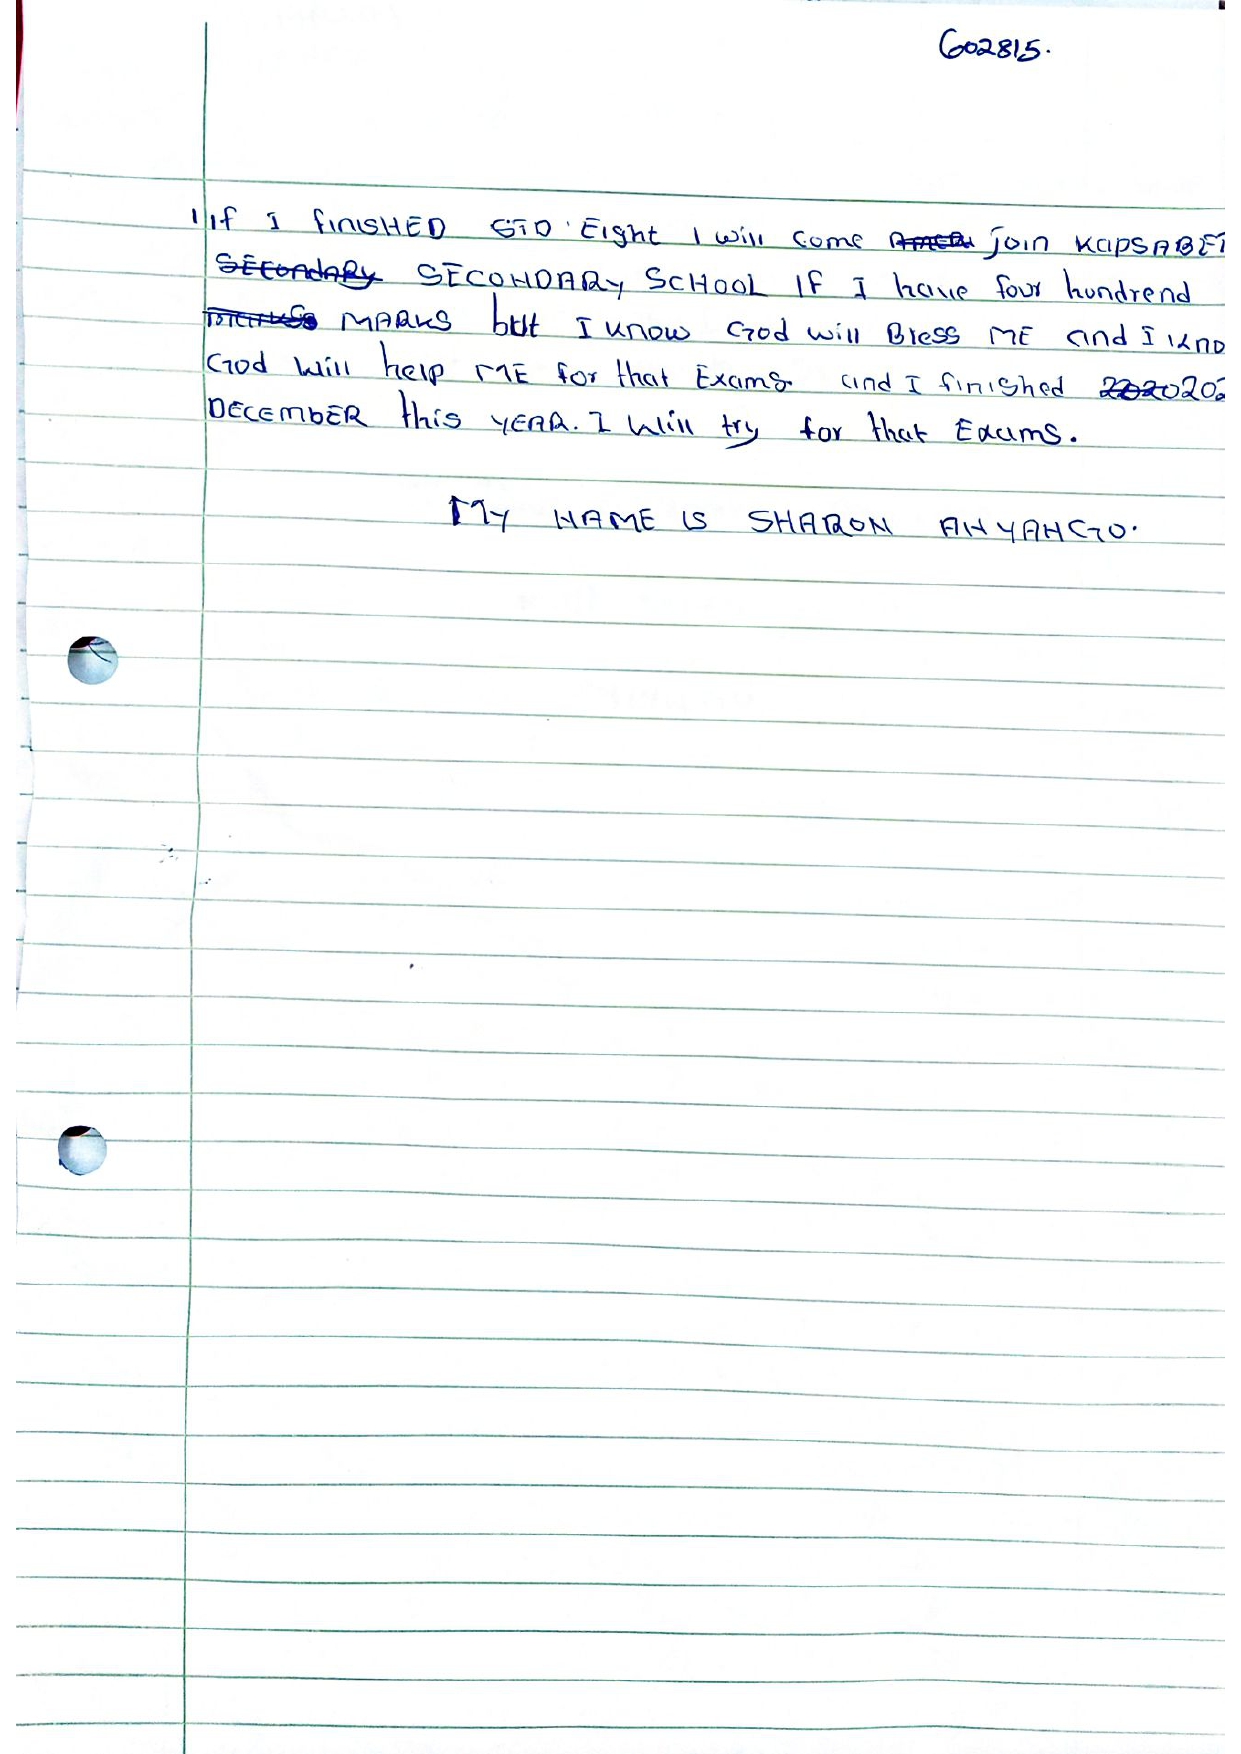 G02815.
1 if I finisHED STD Eight I will come join KapSABET
SECONDARY SCHOOL IF I have four hundrend
MARKS but I know God will Bless ME and I kno
God Will help ME for that Exams. and I finished 202
DECEMBER this YEAR. I Will try for that Exams.
My NAME IS SHARON ANYANGO.